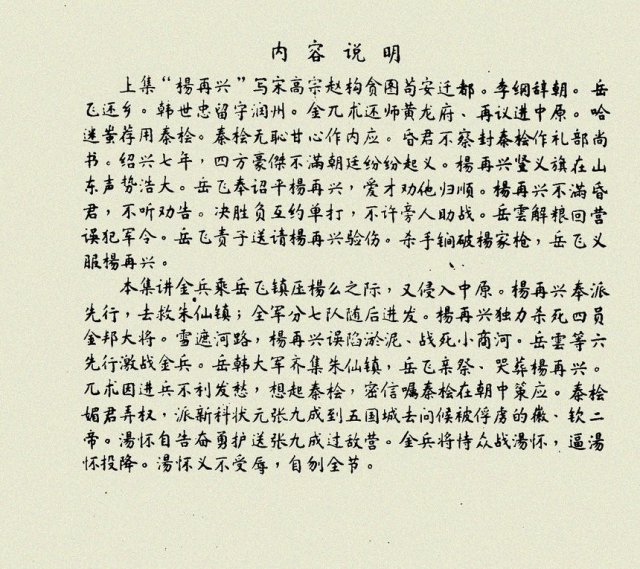 内容说明
上集“楊再兴”写宋高宗赵构贪图苟安迁都。李纲辞朝。岳
飞还乡。韩世忠留守润州。金兀术还师黄龙府、再议进中原。哈
迷蚩荐用秦桧。秦桧无恥甘心作内应。昏君不察封秦桧作礼部尚
书。绍兴七年，四方豪傑不满朝廷纷纷起义。楊再兴竖义旗在山
东声势浩大。岳飞奉诏平楊再兴，爱才劝他归顺。楊再兴不满昏
君，不听劝告。决胜负互约单打，不许旁人助战。岳雲解粮回营
误犯军令。岳飞责子送请楊再兴验伤。杀手锏破楊家枪，岳飞义
服楊再兴。
本集讲金兵乘岳飞镇压楊么之际，又侵入中原。楊再兴奉派
先行，去救朱仙镇；全军分七队随后进发。楊再兴独力杀死四员
金邦大将。雪遮河路，楊再兴误陷淤泥、战死小商河。岳雲等六
先行激战金兵。岳韩大军齐集朱仙镇，岳飞亲祭、哭葬楊再兴。
兀术因进兵不利发愁，想起秦桧，密信嘱秦桧在朝中策应。秦桧
媚君弄权，派新科状元张九成到五国城去问候被俘虏的徽、钦二
帝。湯怀自告奋勇护送张九成过敌营。金兵将恃众战湯怀，逼湯
怀投降。湯怀义不受辱，自刎全节。